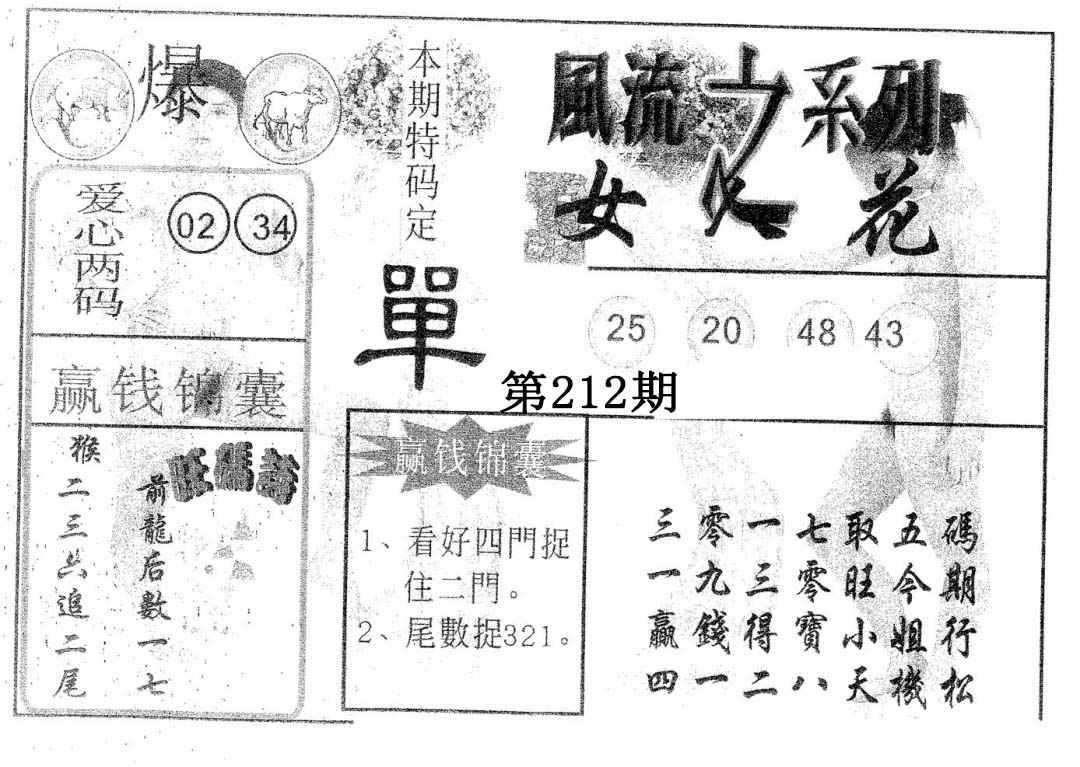 爆
本期特码定
單
風流之系列
女人花
爱心两码
02 34
25 20 48 43
第212期
赢钱锦囊
旺碼詩
前龍后數一七
猴二三六追二尾
赢钱锦囊
1、看好四門捉
住二門。
2、尾數捉321。
碼期行松
五今姐機
取旺小天
七零寶八
一三得二
零九錢一
三一贏四